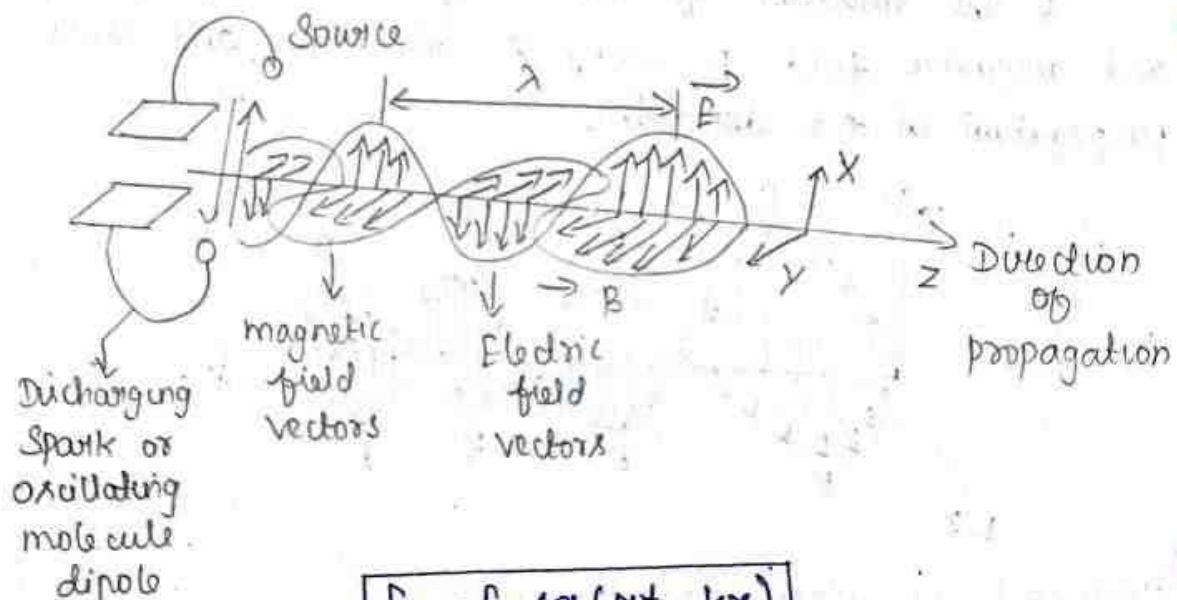 Source
λ
E
X
Y
Z
Direction
of
propagation
B
magnetic
field
vectors
Electric
field
vectors
Discharging
Spark or
oscillating
molecule
dipole